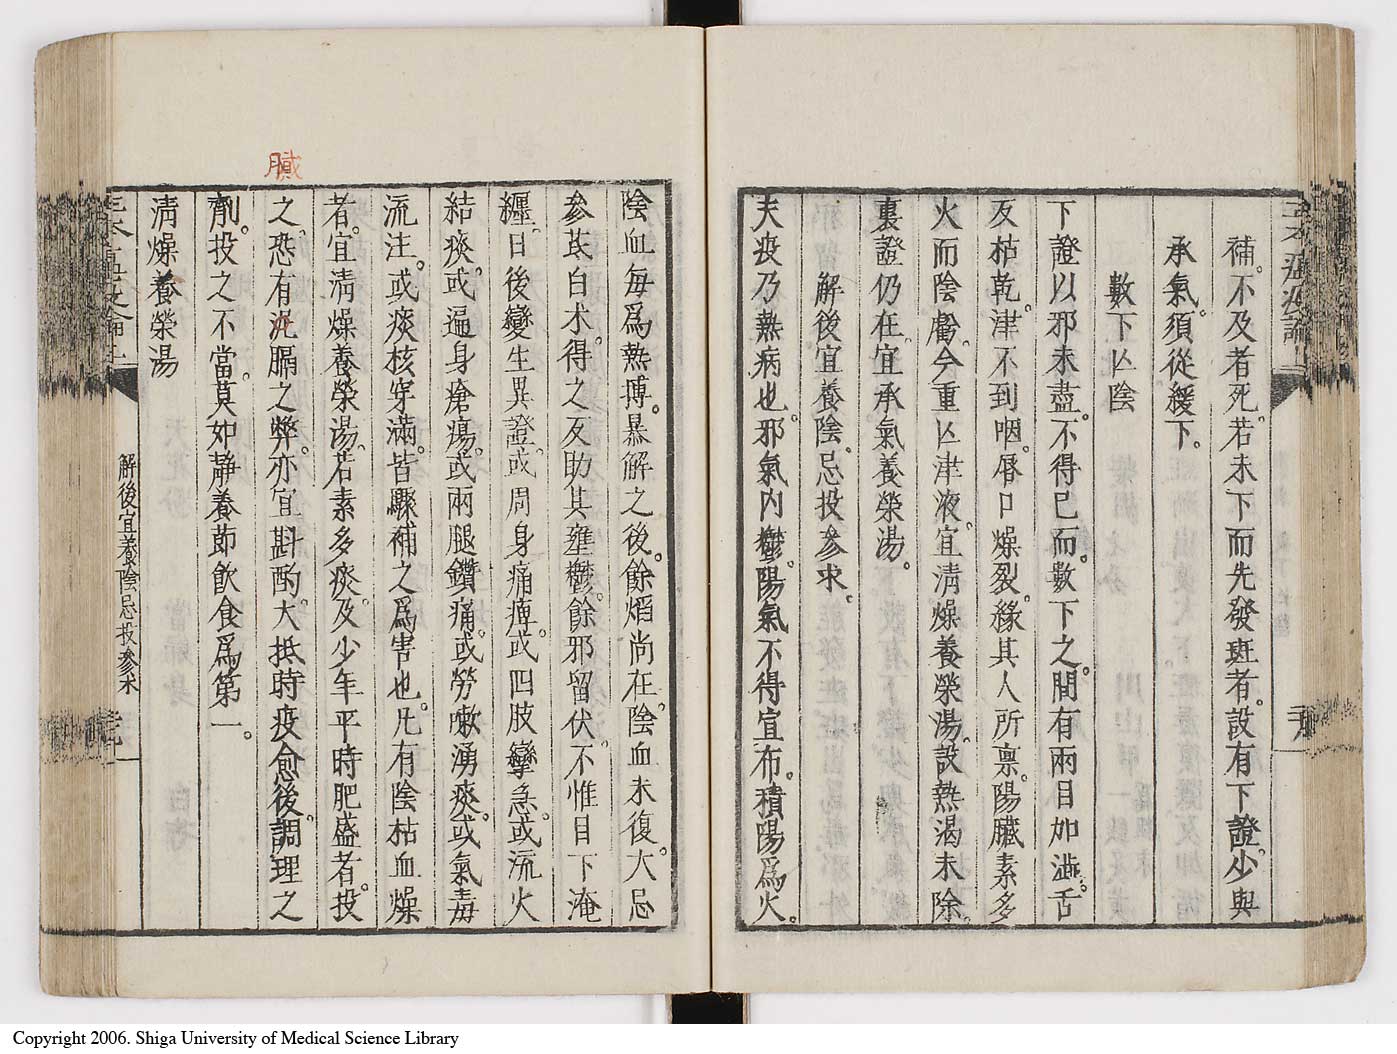 補。不及者死。若未下而先發班者。設有下證。少與
承氣。須從緩下。
數下亾陰
下證以邪未盡。不得已而。數下之。間有兩目加澁。舌
反枯乾。津不到咽。唇口燥裂。緣其人所禀。陽臟素多
火而陰虧。今重亾津液。宜淸燥養榮湯。設熱渴未除。
裏證仍在。宜承氣養榮湯。
解後宜養陰。忌投參求。
夫疫乃熱病也。邪氣内鬱。陽氣不得宣布。積陽爲火。
陰血每爲熱搏。暴解之後。餘熖尚在。陰血未復。大忌
參芪白朮。得之反助其壅鬱。餘邪留伏。不惟目下淹
纏。日後變生異證。或周身痛痺。或四肢攣急。或流火
結痰。或遍身瘡瘍。或兩腿鑽痛。或勞嗽湧痰。或氣毒
流注。或痰核穿漏。皆驟補之爲害也。凡有陰枯血燥
者。宜淸燥養榮湯。若素多痰。及少年平時肥盛者。投
之。恐有泥膈之弊。亦宜斟酌。大抵時疫愈後。調理之
劑。投之不當。莫如靜養節飲食爲第一。
淸燥養榮湯
解後宜養陰忌投參朮
膩
Copyright 2006. Shiga University of Medical Science Library